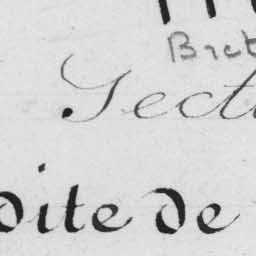 Bret
Secti
dite de